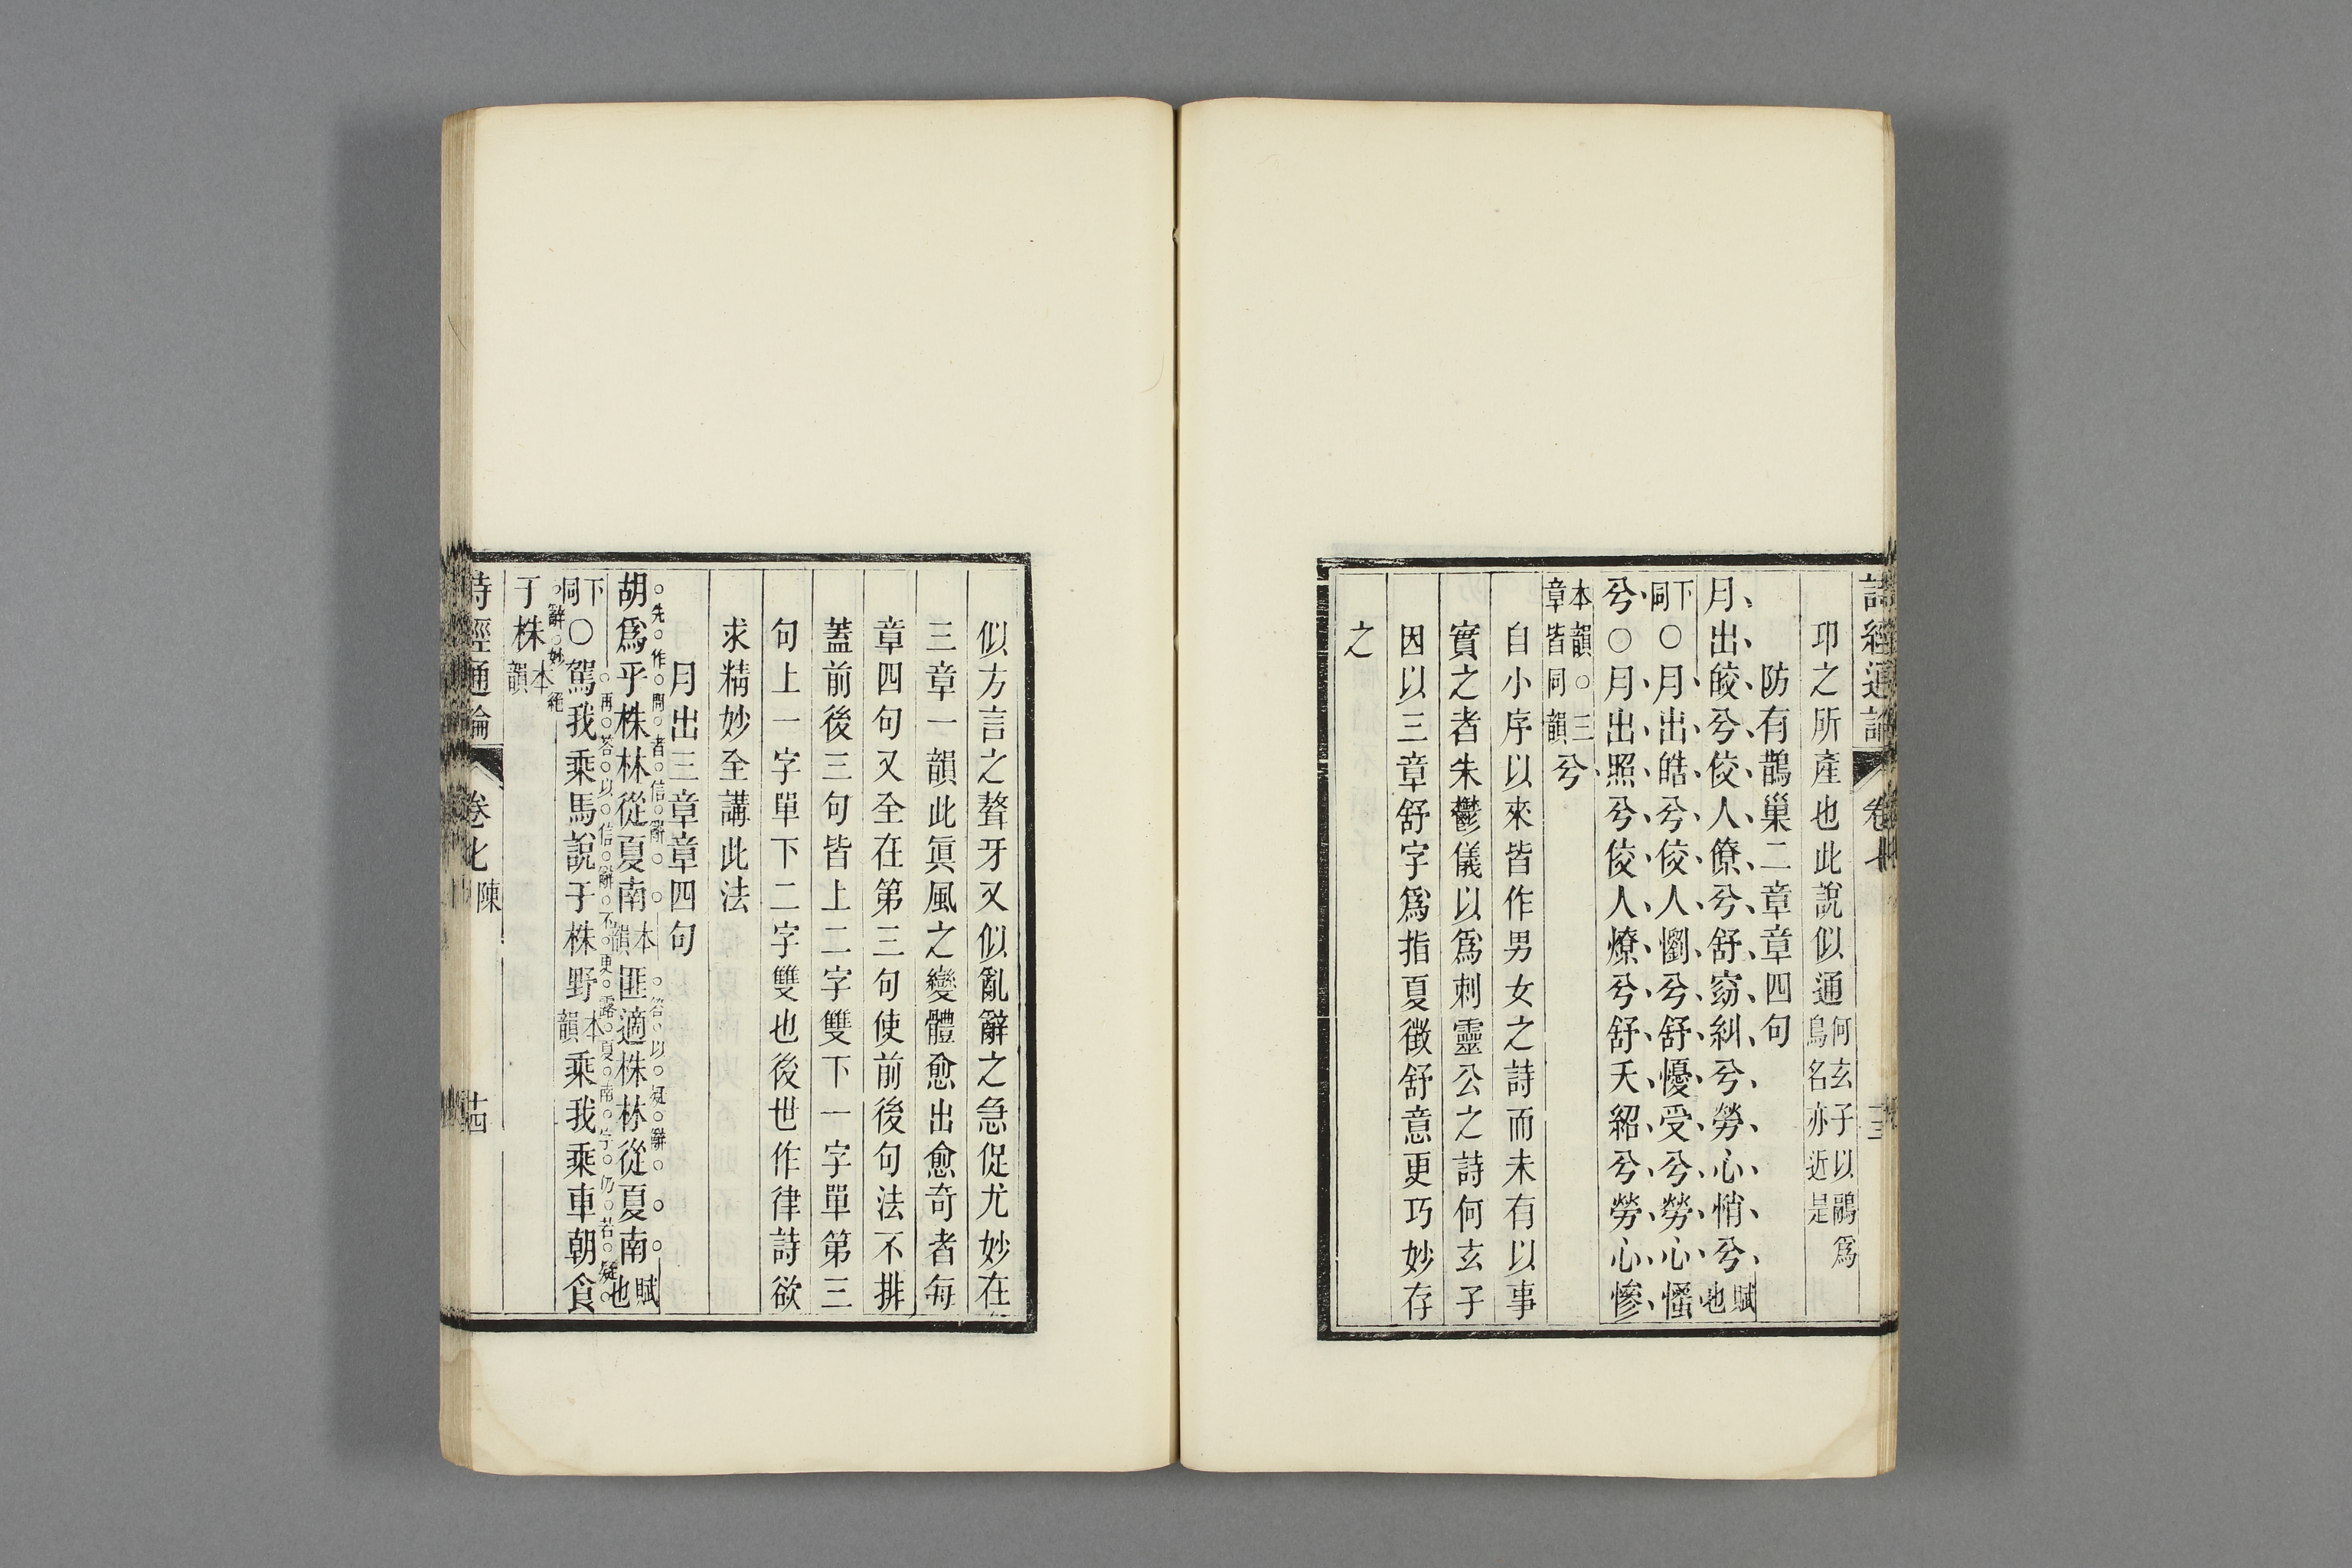 詩經通論 卷七 十三
卭之所產也此說似通何玄子以鷊爲鳥名亦近是
防有鵲巢二章章四句
月出皎兮佼人僚兮舒窈糾兮勞心悄兮賦也
下同○月出皓兮佼人懰兮舒懮受兮勞心慅
兮○月出照兮佼人燎兮舒夭紹兮勞心慘
本韻○三章皆同韻兮
自小序以來皆作男女之詩而未有以事
實之者朱鬱儀以爲刺靈公之詩何玄子
因以三章舒字爲指夏徵舒意更巧妙存
之
似方言之聱牙又似亂辭之急促尤妙在
三章一韻此眞風之變體愈出愈奇者每
章四句又全在第三句使前後句法不排
蓋前後三句皆上二字雙下一字單第三
句上一字單下二字雙也後世作律詩欲
求精妙全講此法
月出三章章四句
先作開者信辭 答以疑辭
胡爲乎株林從夏南本韻匪適株林從夏南賦也
再答以信辭不更露夏南字仍若疑
下同○駕我乘馬說于株野本韻乘我乘車朝食
辭妙絕
于株本韻
詩經通論 卷七 陳 十四